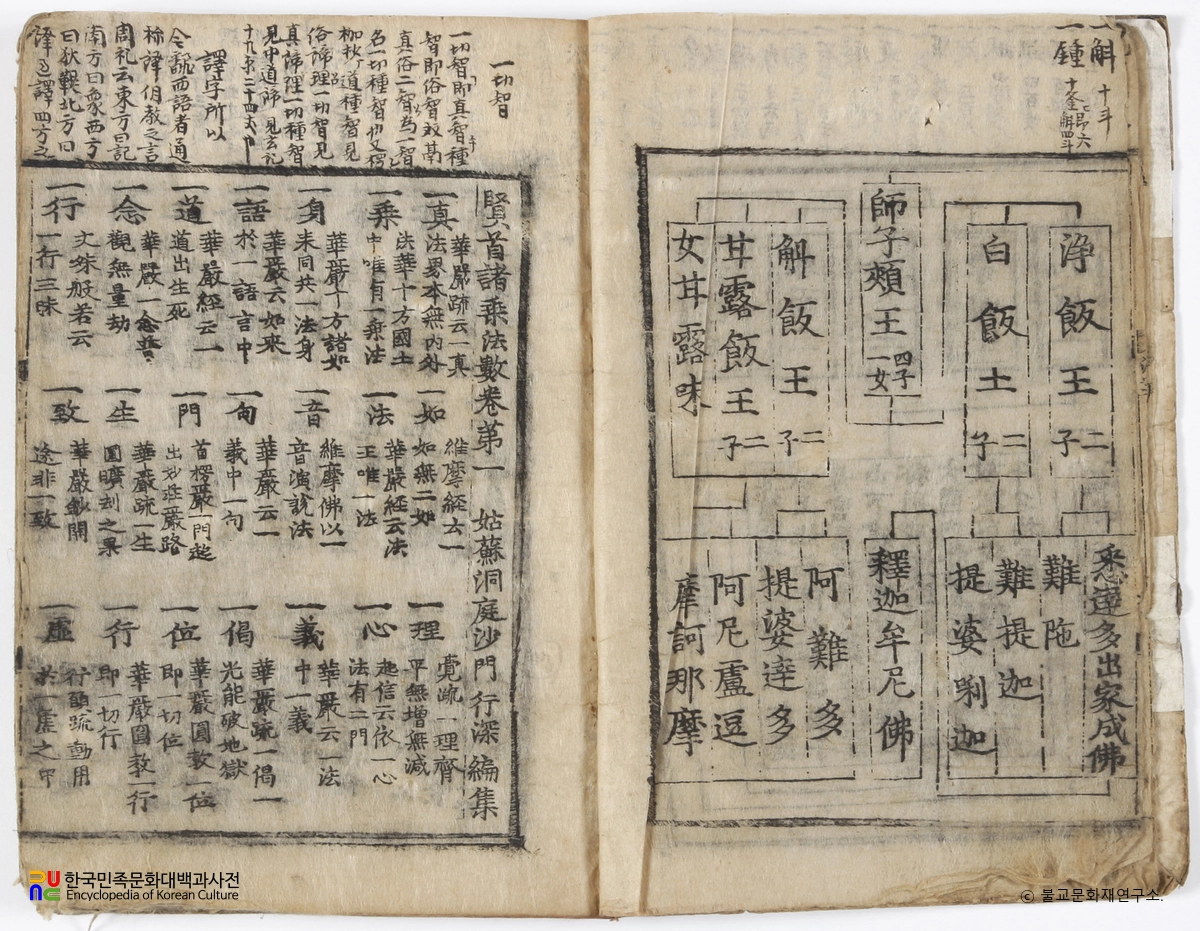 一斛 十斗
一鍾
淨飯王 二子
白飯王 二子
師子頰王 四子一女
斛飯王 二子
甘露飯王 二子
女甘露味
悉達多出家成佛
難陁
難提迦
提婆唎迦
釋迦牟尼佛
阿難多
提婆達多
阿尼盧逗
摩訶那摩
一切智
一切智即真智種
智即俗智故
真俗二智為一智
名一切種智也又楞
伽秋道種智見
俗諦理一切智見
真諦理一切種智
見中道諦
譯字所以
今飜西語者通
稱譯
周礼云東方曰記
南方曰象西方
曰狄鞮北方曰
譯
賢首諸乘法數卷第一 姑蘇洞庭沙門行深編集
一真 華嚴疏云一真法界本無內外
一乘 法華十方國土中唯有一乘法
一身 華嚴十方諸如来同共一法身
一語 華嚴云如來於一語言中
一道 華嚴經云一道出生死
一念 華嚴一念普觀無量劫
一行 文殊般若云一行三昧
一如 維摩經云一如無二如
一法 華嚴經云法王唯一法
一音 維摩佛以一音演說法
一句 華嚴云一義中一句
一門 首楞嚴一門超出妙莊嚴路
一生 華嚴疏一生圓曠刦之果
一致 華嚴鈔開途非一致
一理 覺疏一理齊平無增無減
一心 起信云依一心法有二門
一義 華嚴云一法中一義
一偈 華嚴疏一偈一光能破地獄
一位 華嚴圓教一位即一切位
一行 華嚴圓教一行即一切行
一虛 行願疏動用於一虛之中
한국민족문화대백과사전
Encyclopedia of Korean Culture
ⓒ 불교문화재연구소.